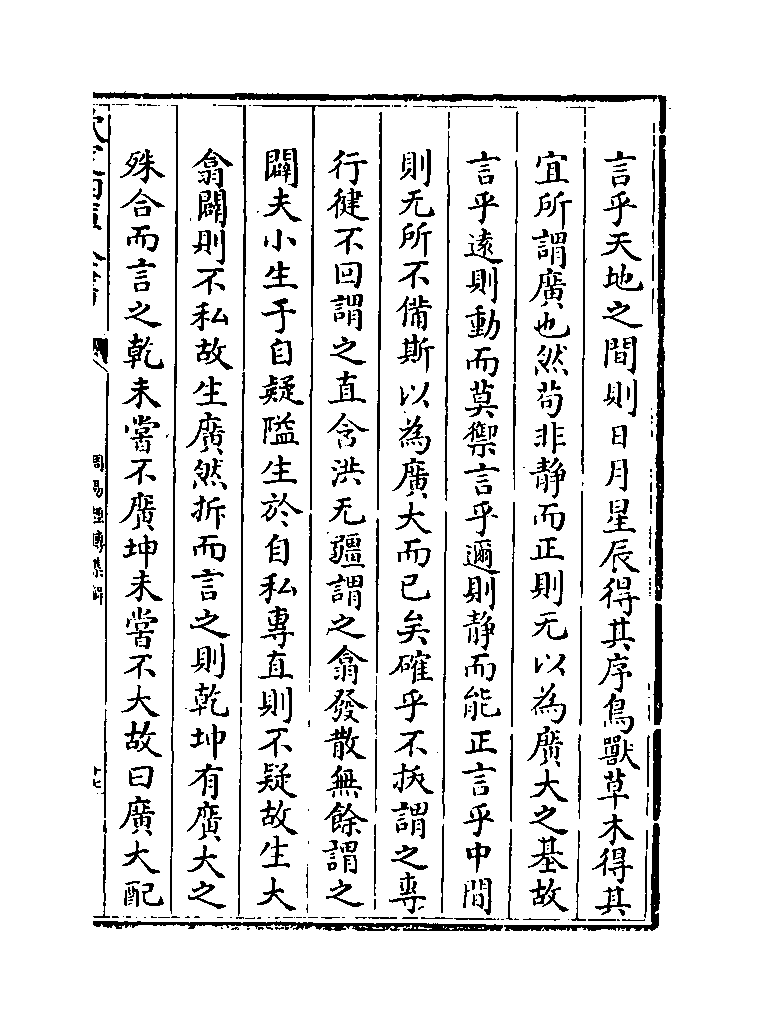 言乎天地之間則日月星辰得其序鳥獸草木得其
宜所謂廣也然苟非静而正則无以為廣大之基故
言乎遠則動而莫禦言乎邇則静而能正言乎中間
則无所不備斯以為廣大而已矣確乎不拔謂之專
行健不回謂之直含洪无疆謂之翕發散無餘謂之
闢夫小生于自疑隘生於自私專直則不疑故生大
翕闢則不私故生廣然拆而言之則乾坤有廣大之
殊合而言之乾未嘗不廣坤未嘗不大故曰廣大配
周易經傳集解